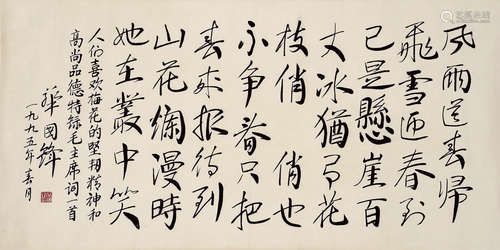 风雨送春归
飛雪迎春到
已是懸崖百
丈冰猶有花
枝俏 俏也
不争春只把
春来报待到
山花爛漫時
她在叢中笑
人们喜欢梅花的堅韧精神和
高尚品德特録毛主席词一首
華國鋒
一九九五年春月